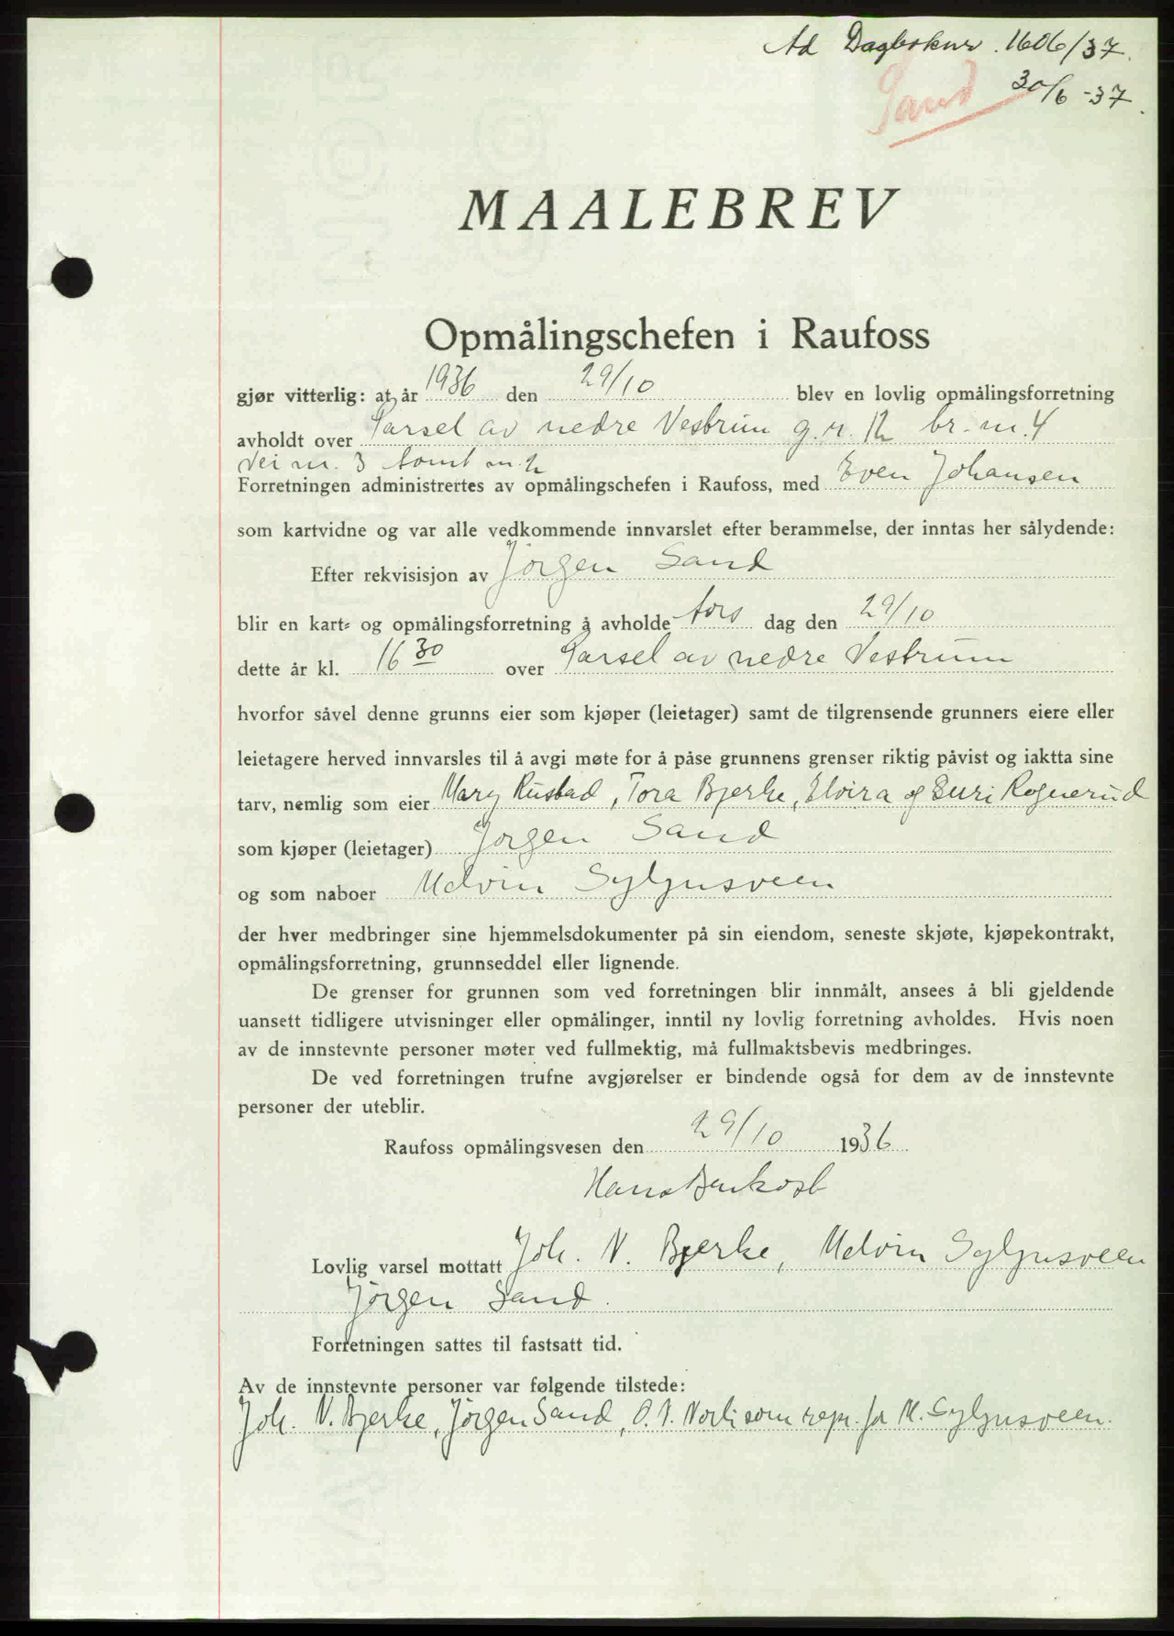 Ad Dagboknr. 1606/37.
30/6-37.
Sand
MAALEBREV
Opmålingschefen i Raufoss
gjør vitterlig: at år 1936 den 29/10 blev en lovlig opmålingsforretning
avholdt over Parsel av nedre Vestrum g.nr. 12 br.nr. 4
Vei nr. 3 tomt nr. 2
Forretningen administrertes av opmålingschefen i Raufoss, med Even Johansen
som kartvidne og var alle vedkommende innvarslet efter berammelse, der inntas her sålydende:
Efter rekvisisjon av Jørgen Sand
blir en kart- og opmålingsforretning å avholde tors dag den 29/10
dette år kl. 16 30 over Parsel av nedre Vestrum
hvorfor såvel denne grunns eier som kjøper (leietager) samt de tilgrensende grunners eiere eller
leietagere herved innvarsles til å avgi møte for å påse grunnens grenser riktig påvist og iaktta sine
tarv, nemlig som eier Mary Rustad, Tora Bjerke, Elvira og Guri Rognerud
som kjøper (leietager) Jørgen Sand
og som naboer Melvin Syljusveen
der hver medbringer sine hjemmelsdokumenter på sin eiendom, seneste skjøte, kjøpekontrakt,
opmålingsforretning, grunnseddel eller lignende.
De grenser for grunnen som ved forretningen blir innmålt, ansees å bli gjeldende
uansett tidligere utvisninger eller opmålinger, inntil ny lovlig forretning avholdes. Hvis noen
av de innstevnte personer møter ved fullmektig, må fullmaktsbevis medbringes.
De ved forretningen trufne avgjørelser er bindende også for dem av de innstevnte
personer der uteblir.
Raufoss opmålingsvesen den 29/10 1936
Hans
Lovlig varsel mottatt Joh. N. Bjerke, Melvin Syljusveen
Jørgen Sand.
Forretningen sattes til fastsatt tid.
Av de innstevnte personer var følgende tilstede:
Joh. N. Bjerke, Jørgen Sand, O. N. Norli som repr. for M. Syljusveen.